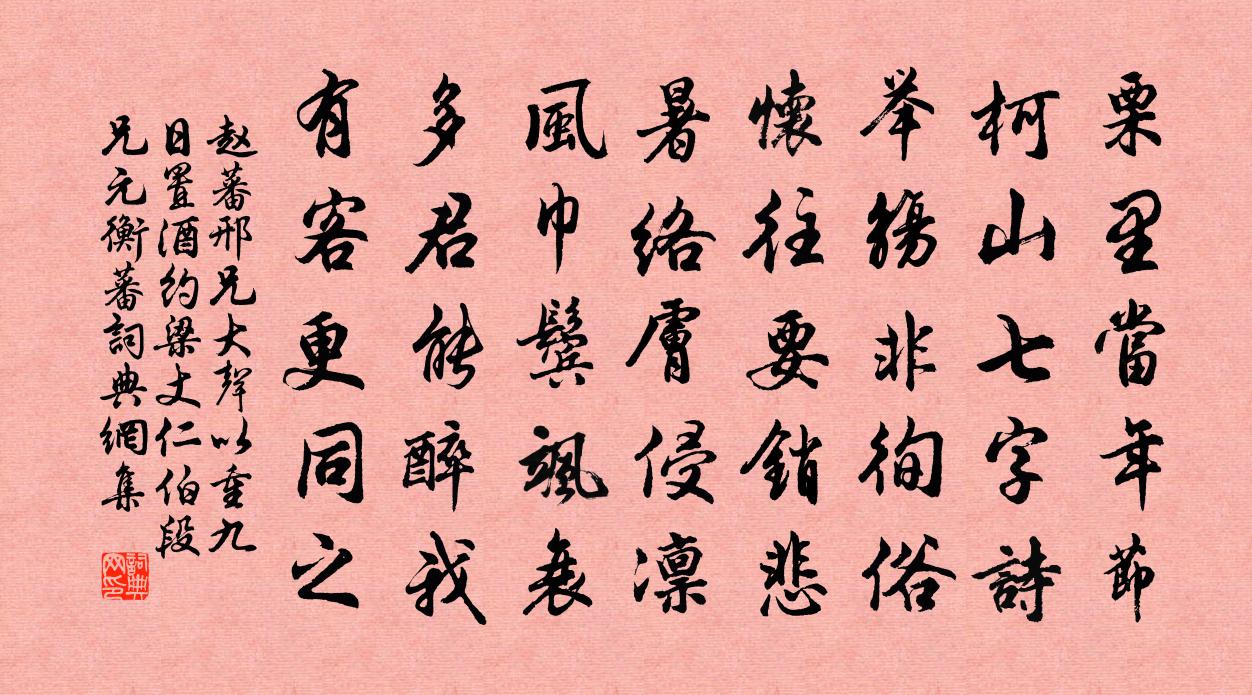 栗里當年節
柯山七字詩
举觴非徇俗
懷往要銷悲
暑絡膚侵凛
風巾鬓颯衰
多君能醉我
有客更同之
赵蕃邢兄大聲以重九
日置酒約梁丈仁伯段
兄元衡蕃詞典網集
詞典网印